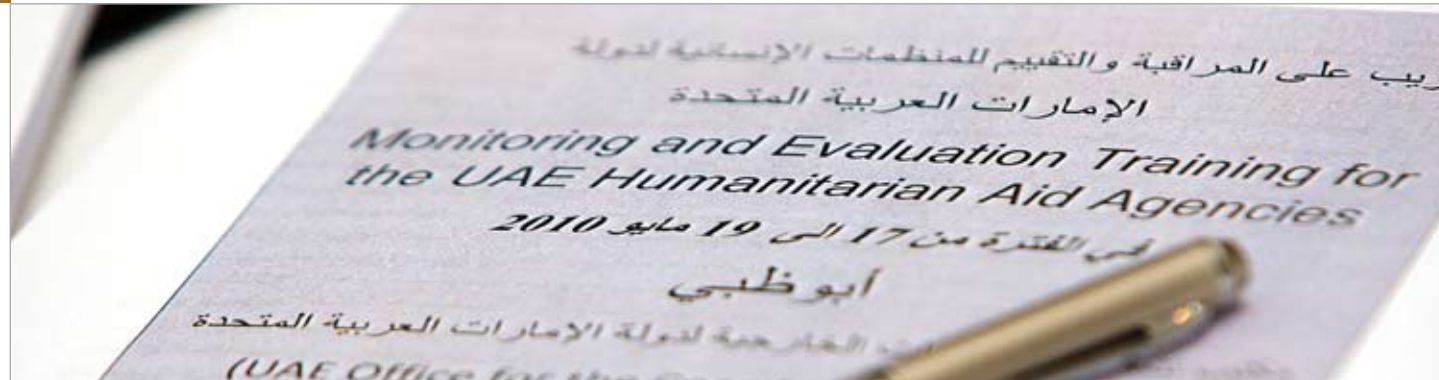 ريب على المراقبة والتقييم للمنظمات الإنسانية لدولة
الإمارات العربية المتحدة
Monitoring and Evaluation Training for
the UAE Humanitarian Aid Agencies
في الفترة من 17 الى 19 مايو 2010
أبوظبي
الخارجية لدولة الإمارات العربية المتحدة
(UAE Office for the